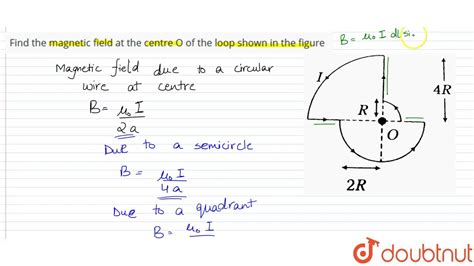 B = μ₀ I dl si.
Find the magnetic field at the centre O of the loop shown in the figure
Magnetic field due to a circular
wire at centre
B = μ₀ I
2a
Due to a semicircle
B = μ₀ I
4a
Due to a quadrant
B = μ₀ I
I
4R
R
O
2R
doubtnut